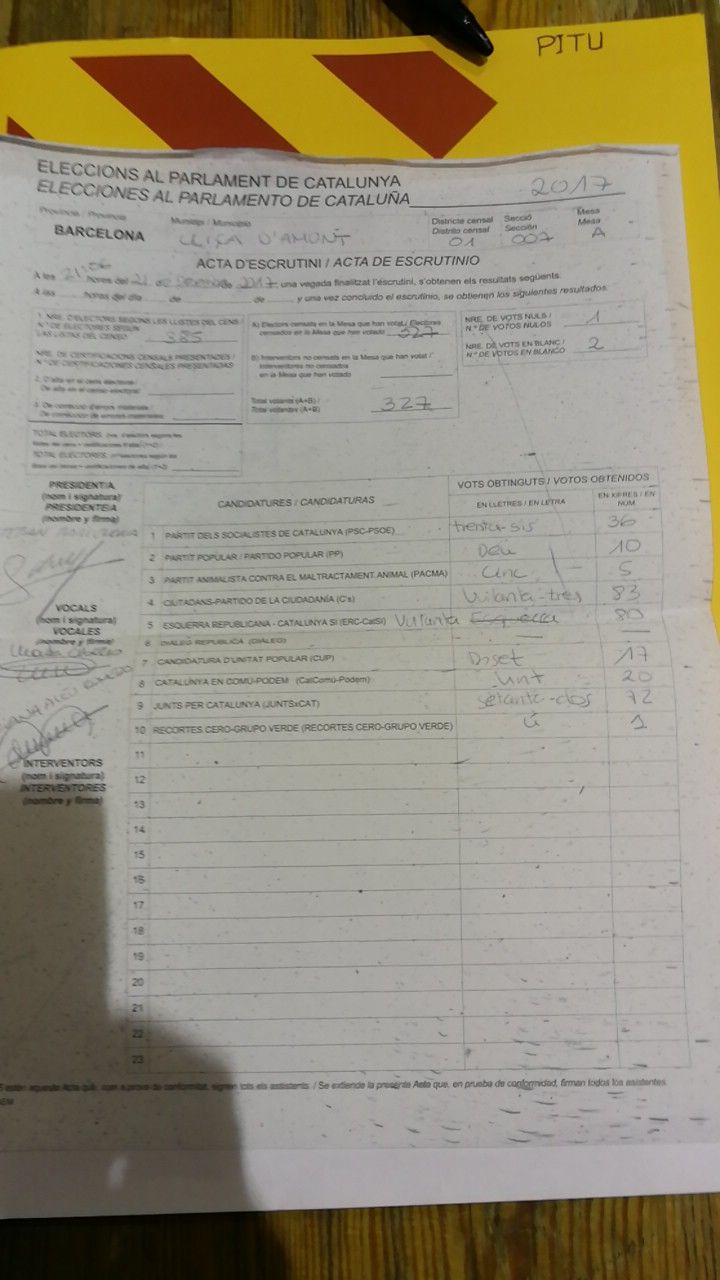 PITU
ELECCIONS AL PARLAMENT DE CATALUNYA
ELECCIONES AL PARLAMENTO DE CATALUÑA 2017
Província / Provincia
BARCELONA
Municipi / Municipio
LLIÇA D'AMUNT
Districte censal
Distrito censal
01
Secció
Sección
007
Mesa
Mesa
A
ACTA D'ESCRUTINI / ACTA DE ESCRUTINIO
A les 21,06 hores del 21 de 2017 una vegada finalitzat l'escrutini, s'obtenen els resultats següents.
A las horas del día de de y una vez concluido el escrutinio, se obtienen los siguientes resultados.
1. NRE. D'ELECTORS SEGONS LES LLISTES DEL CENS /
N.º DE ELECTORES SEGÚN
LAS LISTAS DEL CENSO 385
NRE. DE CERTIFICACIONS CENSALS PRESENTADES /
N.º DE CERTIFICACIONES CENSALES PRESENTADAS
A) Electors censats en la Mesa que han votat / Electores
censados en la Mesa que han votado 327
B) Interventors no censats en la Mesa que han votat /
Interventores no censados
en la Mesa que han votado
Total votants (A+B) /
Total votantes (A+B) 327
NRE. DE VOTS NULS /
N.º DE VOTOS NULOS 1
NRE. DE VOTS EN BLANC /
N.º DE VOTOS EN BLANCO 2
PRESIDENT/A
(nom i signatura)
PRESIDENTE/A
(nombre y firma)
VOCALS
(nom i signatura)
VOCALES
(nombre y firma)
INTERVENTORS
(nom i signatura)
INTERVENTORES
(nombre y firma)
CANDIDATURES / CANDIDATURAS
VOTS OBTINGUTS / VOTOS OBTENIDOS
EN LLETRES / EN LETRA
EN XIFRES / EN NÚM
1 PARTIT DELS SOCIALISTES DE CATALUNYA (PSC-PSOE) trenta-sis 36
2 PARTIT POPULAR / PARTIDO POPULAR (PP) Deu 10
3 PARTIT ANIMALISTA CONTRA EL MALTRACTAMENT ANIMAL (PACMA) Cinc 5
4 CIUTADANS-PARTIDO DE LA CIUDADANÍA (C's) Vuitanta-tres 83
5 ESQUERRA REPUBLICANA - CATALUNYA SÍ (ERC-CatSí) Vuitanta 80
6 DIÀLEG REPUBLICÀ (DIÀLEG)
7 CANDIDATURA D'UNITAT POPULAR (CUP) Disset 17
8 CATALUNYA EN COMÚ-PODEM (CatComú-Podem) Vint 20
9 JUNTS PER CATALUNYA (JUNTSxCAT) setanta-dos 72
10 RECORTES CERO-GRUPO VERDE (RECORTES CERO-GRUPO VERDE) U 1
11
12
13
14
15
16
17
18
19
20
21
22
23
aquesta Acta que, com a prova de conformitat, signen tots els assistents. / Se extiende la presente Acta que, en prueba de conformidad, firman todos los asistentes.